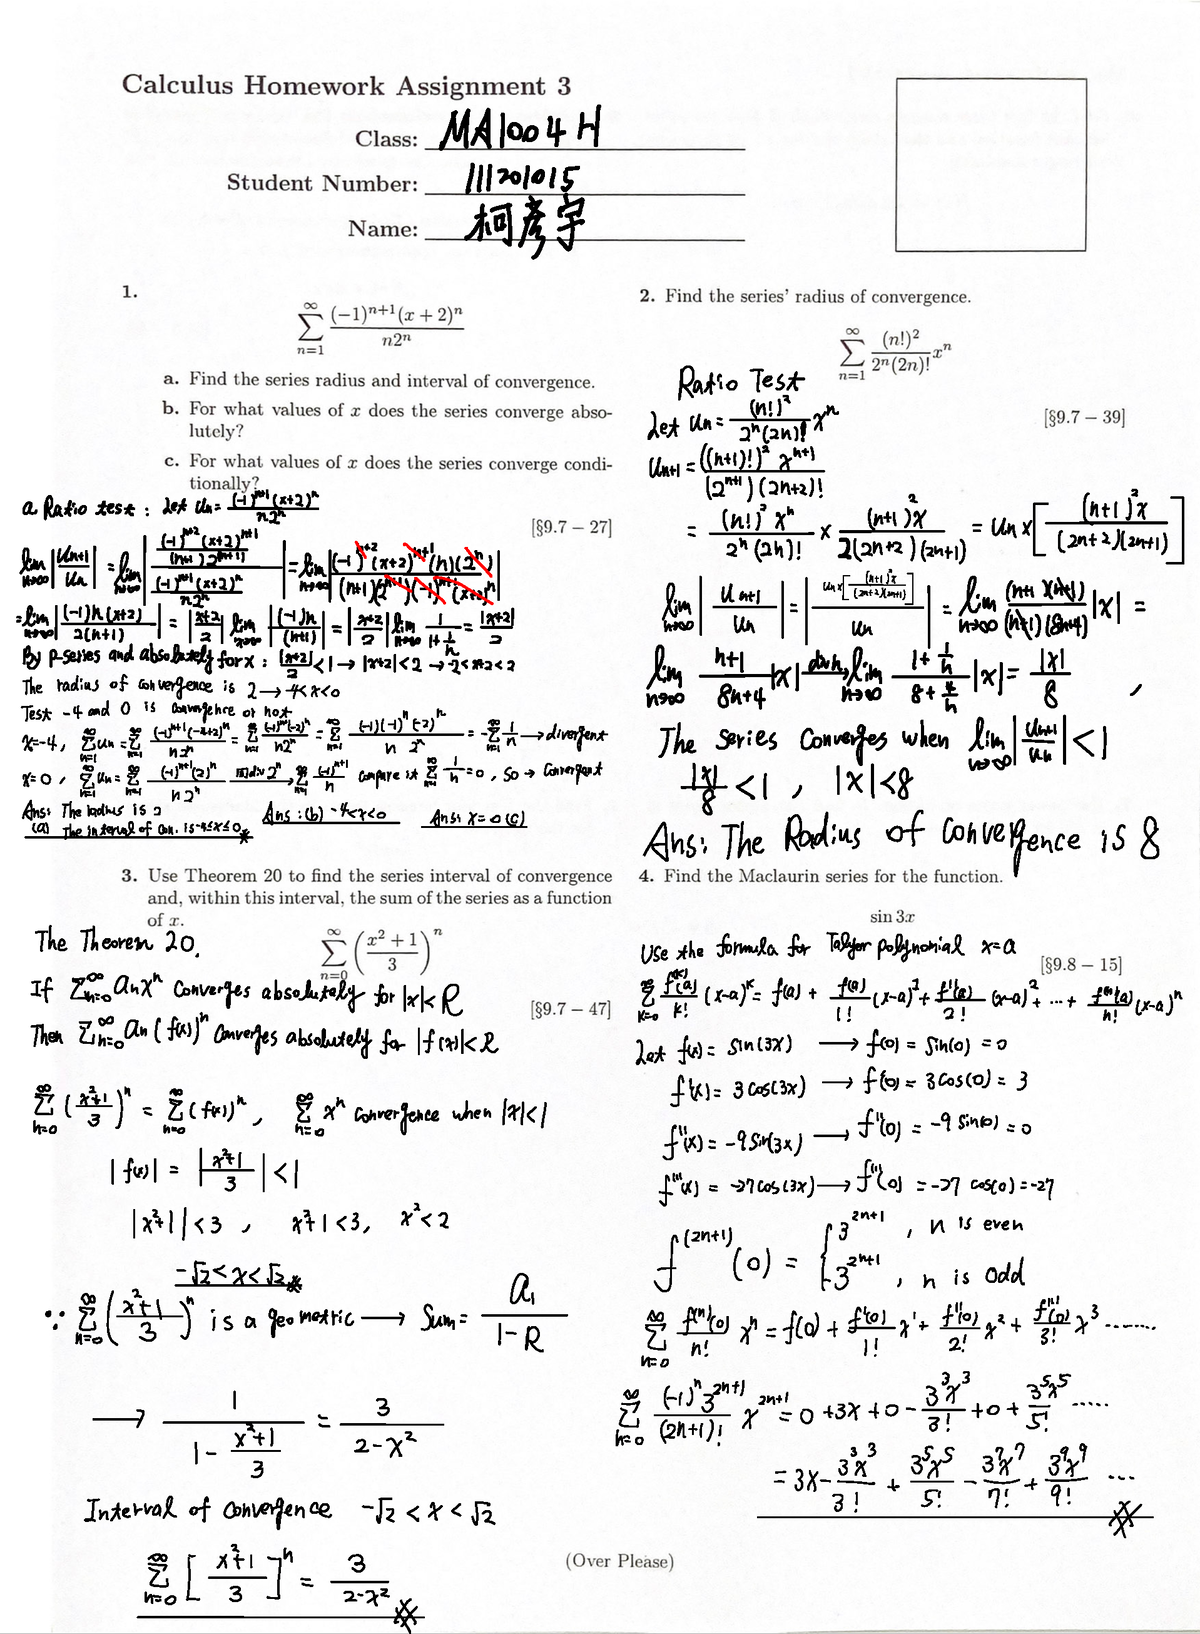 Calculus Homework Assignment 3
Class: MA1004H
Student Number: 111201015
Name: 柯彥宇
1.
∑_{n=1}^{∞} (−1)^{n+1}(x + 2)^n / n2^n
a. Find the series radius and interval of convergence.
b. For what values of x does the series converge abso-
lutely?
c. For what values of x does the series converge condi-
tionally?
[§9.7 – 27]
a Ratio test : Let Un = (-1)^{n+1}(x+2)^n / n2^n
lim_{n→∞} |Un+1 / Un| = lim_{n→∞} |((-1)^{n+2}(x+2)^{n+1} / (n+1)2^{n+1}) / ((-1)^{n+1}(x+2)^n / n2^n)| = lim_{n→∞} |(-1)^{n+2}(x+2)^{n+1}(n)(2^n) / (n+1)(2^{n+1})(-1)^{n+1}(x+2)^n|
= lim_{n→∞} |(-1)n(x+2) / 2(n+1)| = |x+2|/2 lim_{n→∞} |(-1)n / (n+1)| = |x+2|/2 lim_{n→∞} 1/(1+1/n) = |x+2|/2
By P-series and absolutely for x : |x+2|/2 < 1 → |x+2| < 2 → -2 < x+2 < 2
The radius of convergence is 2 → -4<x<0
Test -4 and 0 is convergence or not
x=-4, ∑_{n=1}^{∞} Un = ∑_{n=1}^{∞} (-1)^{n+1}(-4+2)^n / n2^n = ∑_{n=1}^{∞} (-1)^{n+1}(-2)^n / n2^n = ∑_{n=1}^{∞} (-1)(-1)^n(-2)^n / n 2^n = -∑_{n=1}^{∞} 1/n → divergent
x=0, ∑_{n=1}^{∞} Un = ∑_{n=1}^{∞} (-1)^{n+1}(2)^n / n2^n 同div 2^n → ∑_{n=1}^{∞} (-1)^{n+1} / n compare it ∑_{n=1}^{∞} 1/n = 0, So → Convergent
Ans: The radius is 2
(a) The interval of con. is -4≤x≤0
Ans : (b) -4<x<0
Ans: x=0 (c)
2. Find the series’ radius of convergence.
∑_{n=1}^{∞} (n!)^2 / 2^n(2n)! x^n
[§9.7 – 39]
Ratio Test
Let Un = (n!)^2 / 2^n(2n)! x^n
Un+1 = ((n+1)!)^2 x^{n+1} / (2^{n+1})(2n+2)!
= (n!)^2 x^n / 2^n(2n)! × (n+1)^2 x / 2(2n+2)(2n+1) = Un × [(n+1)^2 x / (2n+2)(2n+1)]
lim_{n→∞} |Un+1 / Un| = |Un×[(n+1)^2 x / (2n+2)(2n+1)] / Un| = lim_{n→∞} (n+1)(n+1) / (n+1)(8n+4) |x| =
lim_{n→∞} n+1 / 8n+4 |x| div n, lim_{n→∞} (1+1/n) / (8+4/n) |x| = |x|/8 ,
The Series Converges when lim_{n→∞} |Un+1 / Un| < 1
|x|/8 < 1 , |x|<8
Ans: The Radius of convergence is 8
3. Use Theorem 20 to find the series interval of convergence
and, within this interval, the sum of the series as a function
of x.
∑_{n=0}^{∞} ((x^2 + 1) / 3)^n
[§9.7 – 47]
The Theorem 20.
If ∑_{n=0}^{∞} an x^n Converges absolutely for |x|<R
Then ∑_{n=0}^{∞} an (f(x))^n Converges absolutely for |f(x)|<R
∑_{n=0}^{∞} ((x^2+1)/3)^n = ∑_{n=0}^{∞} (f(x))^n, ∑_{n=0}^{∞} x^n Convergence when |x|<1
|f(x)| = |(x^2+1)/3| < 1
|x^2+1| < 3 , x^2+1 < 3, x^2 < 2
-√2 < x < √2
∵ ∑_{n=0}^{∞} ((x^2+1)/3)^n is a geometric → Sum = a1 / (1-R)
→ 1 / (1 - (x^2+1)/3) = 3 / (2-x^2)
Interval of convergence -√2 < x < √2
∑_{n=0}^{∞} [(x^2+1)/3]^n = 3 / (2-x^2)
4. Find the Maclaurin series for the function.
sin 3x
[§9.8 – 15]
Use the formula for Talyor polynomial x=a
∑_{k=0}^{∞} f^{(k)}(a)/k! (x-a)^k = f(a) + f'(a)/1! (x-a)^1 + f''(a)/2! (x-a)^2 + ... + f^{(n)}(a)/n! (x-a)^n
Let f(x) = sin(3x) → f(0) = Sin(0) = 0
f'(x) = 3 cos(3x) → f'(0) = 3 cos(0) = 3
f''(x) = -9 Sin(3x) → f''(0) = -9 Sin(0) = 0
f'''(x) = -27 cos(3x) → f'''(0) = -27 cos(0) = -27
f^{(2n+1)}(0) = { 3^{2n+1} , n is even
{ 3^{2n+1} , n is odd
∑_{n=0}^{∞} f^{(n)}(0)/n! x^n = f(0) + f'(0)/1! x^1 + f''(0)/2! x^2 + f'''(0)/3! x^3 ........
∑_{n=0}^{∞} (-1)^n 3^{2n+1} / (2n+1)! x^{2n+1} = 0 + 3x + 0 - 3^3x^3/3! + 0 + 3^5x^5/5! .....
= 3x - 3^3x^3/3! + 3^5x^5/5! - 3^7x^7/7! + 3^9x^9/9! ...
(Over Please)